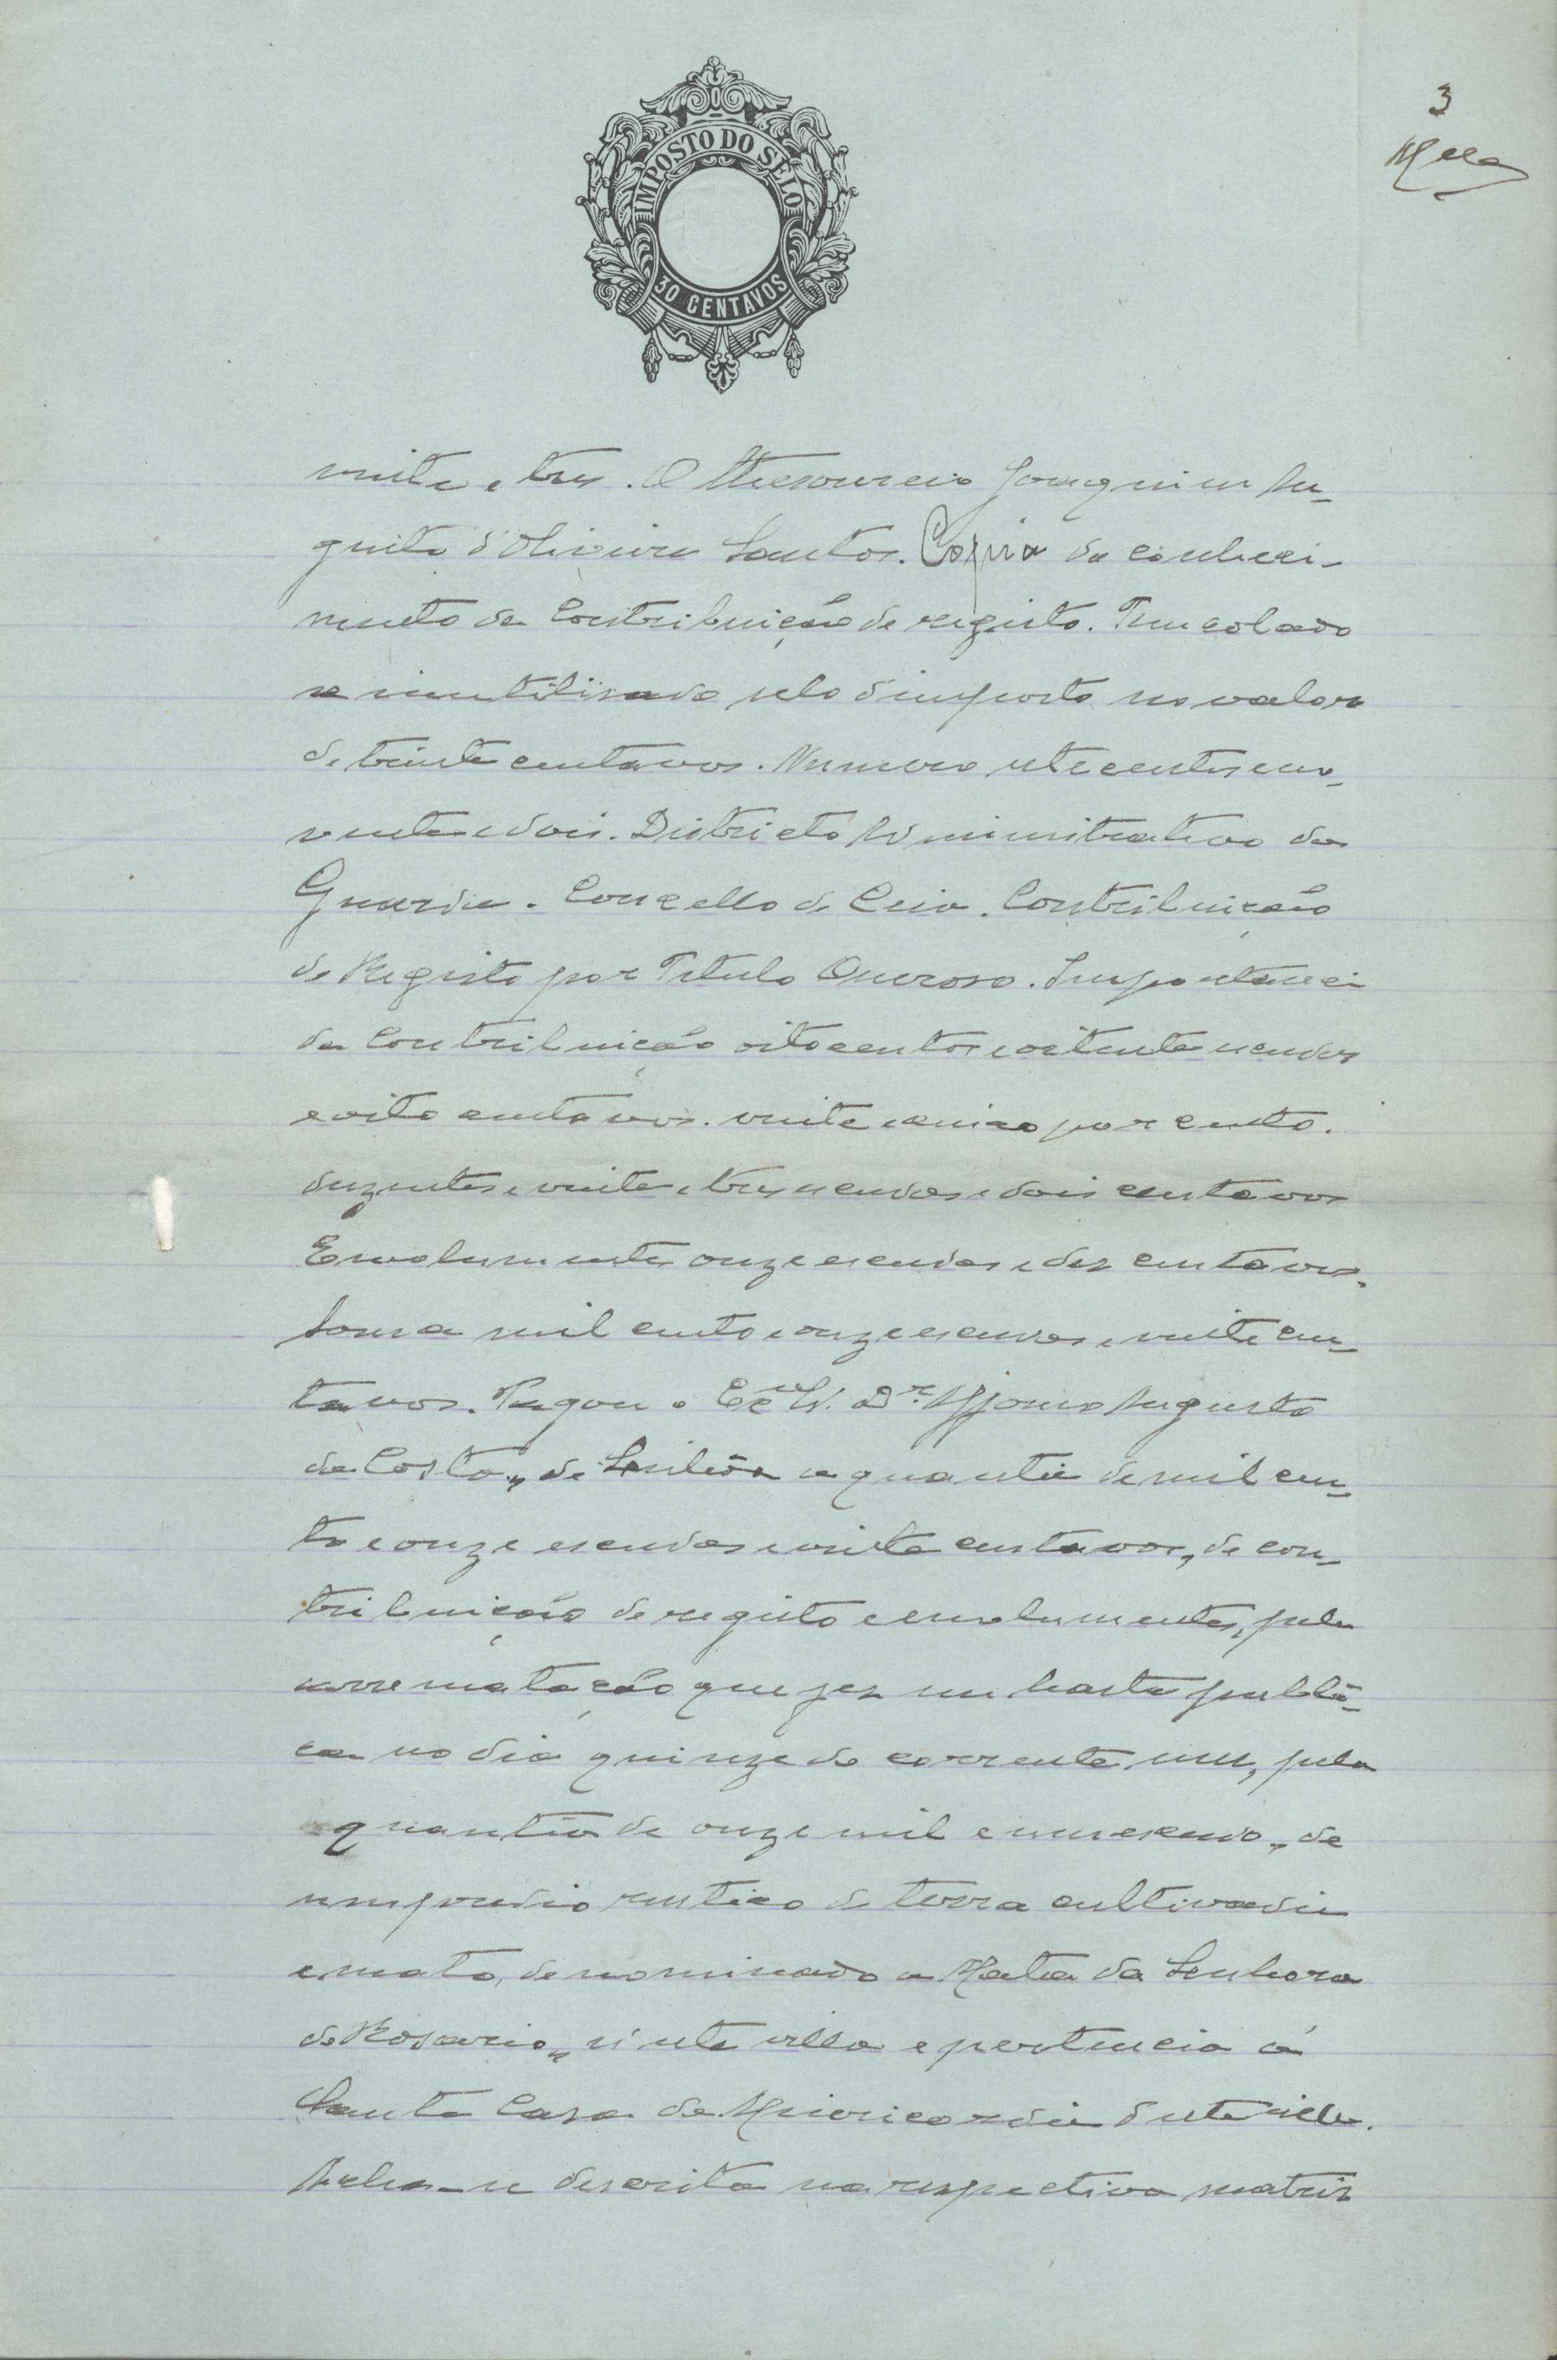 3
IMPOSTO DO SELO
30 CENTAVOS
vinte e tres. O Thesoureiro Joaquim Au-
gusto d'Oliveira Santos. Copia do conheci-
mento da Contribuição de registo. Tem colado
e inutilisado selo d'imposto no valor
de trinta centavos. Numero setecentos no-
venta e dois. Districto Administrativo da
Guarda. Concello de Ceia. Contribuição
de Registo por Titulo Oneroso. Importancia
da Contribuição oitocentos e setenta escudos
e oito centavos. vinte e cinco por cento.
duzentos e vinte e tres escudos e dois centavos
Emolumentos onze escudos e dez centavos.
Soma mil cento e onze escudos e vinte cen-
tavos. Pagou o Exmo Sr. Dr. Affonso Augusto
da Costa, de Lisbôa a quantia de mil cen-
to e onze escudos e vinte centavos, de con-
tribuição de registo e emolumentos, pela
arrematação que fez em hasta publi-
ca no dia quinze do corrente mez, pela
quantia de onze mil e um escudo, de
um predio rustico de terra cultivada
e mato, denominado a Mata da Senhora
do Rosario, n'esta villa e pertencia á
Santa Casa da Misericordia d'esta villa.
Acha-se descrita na respectiva matriz